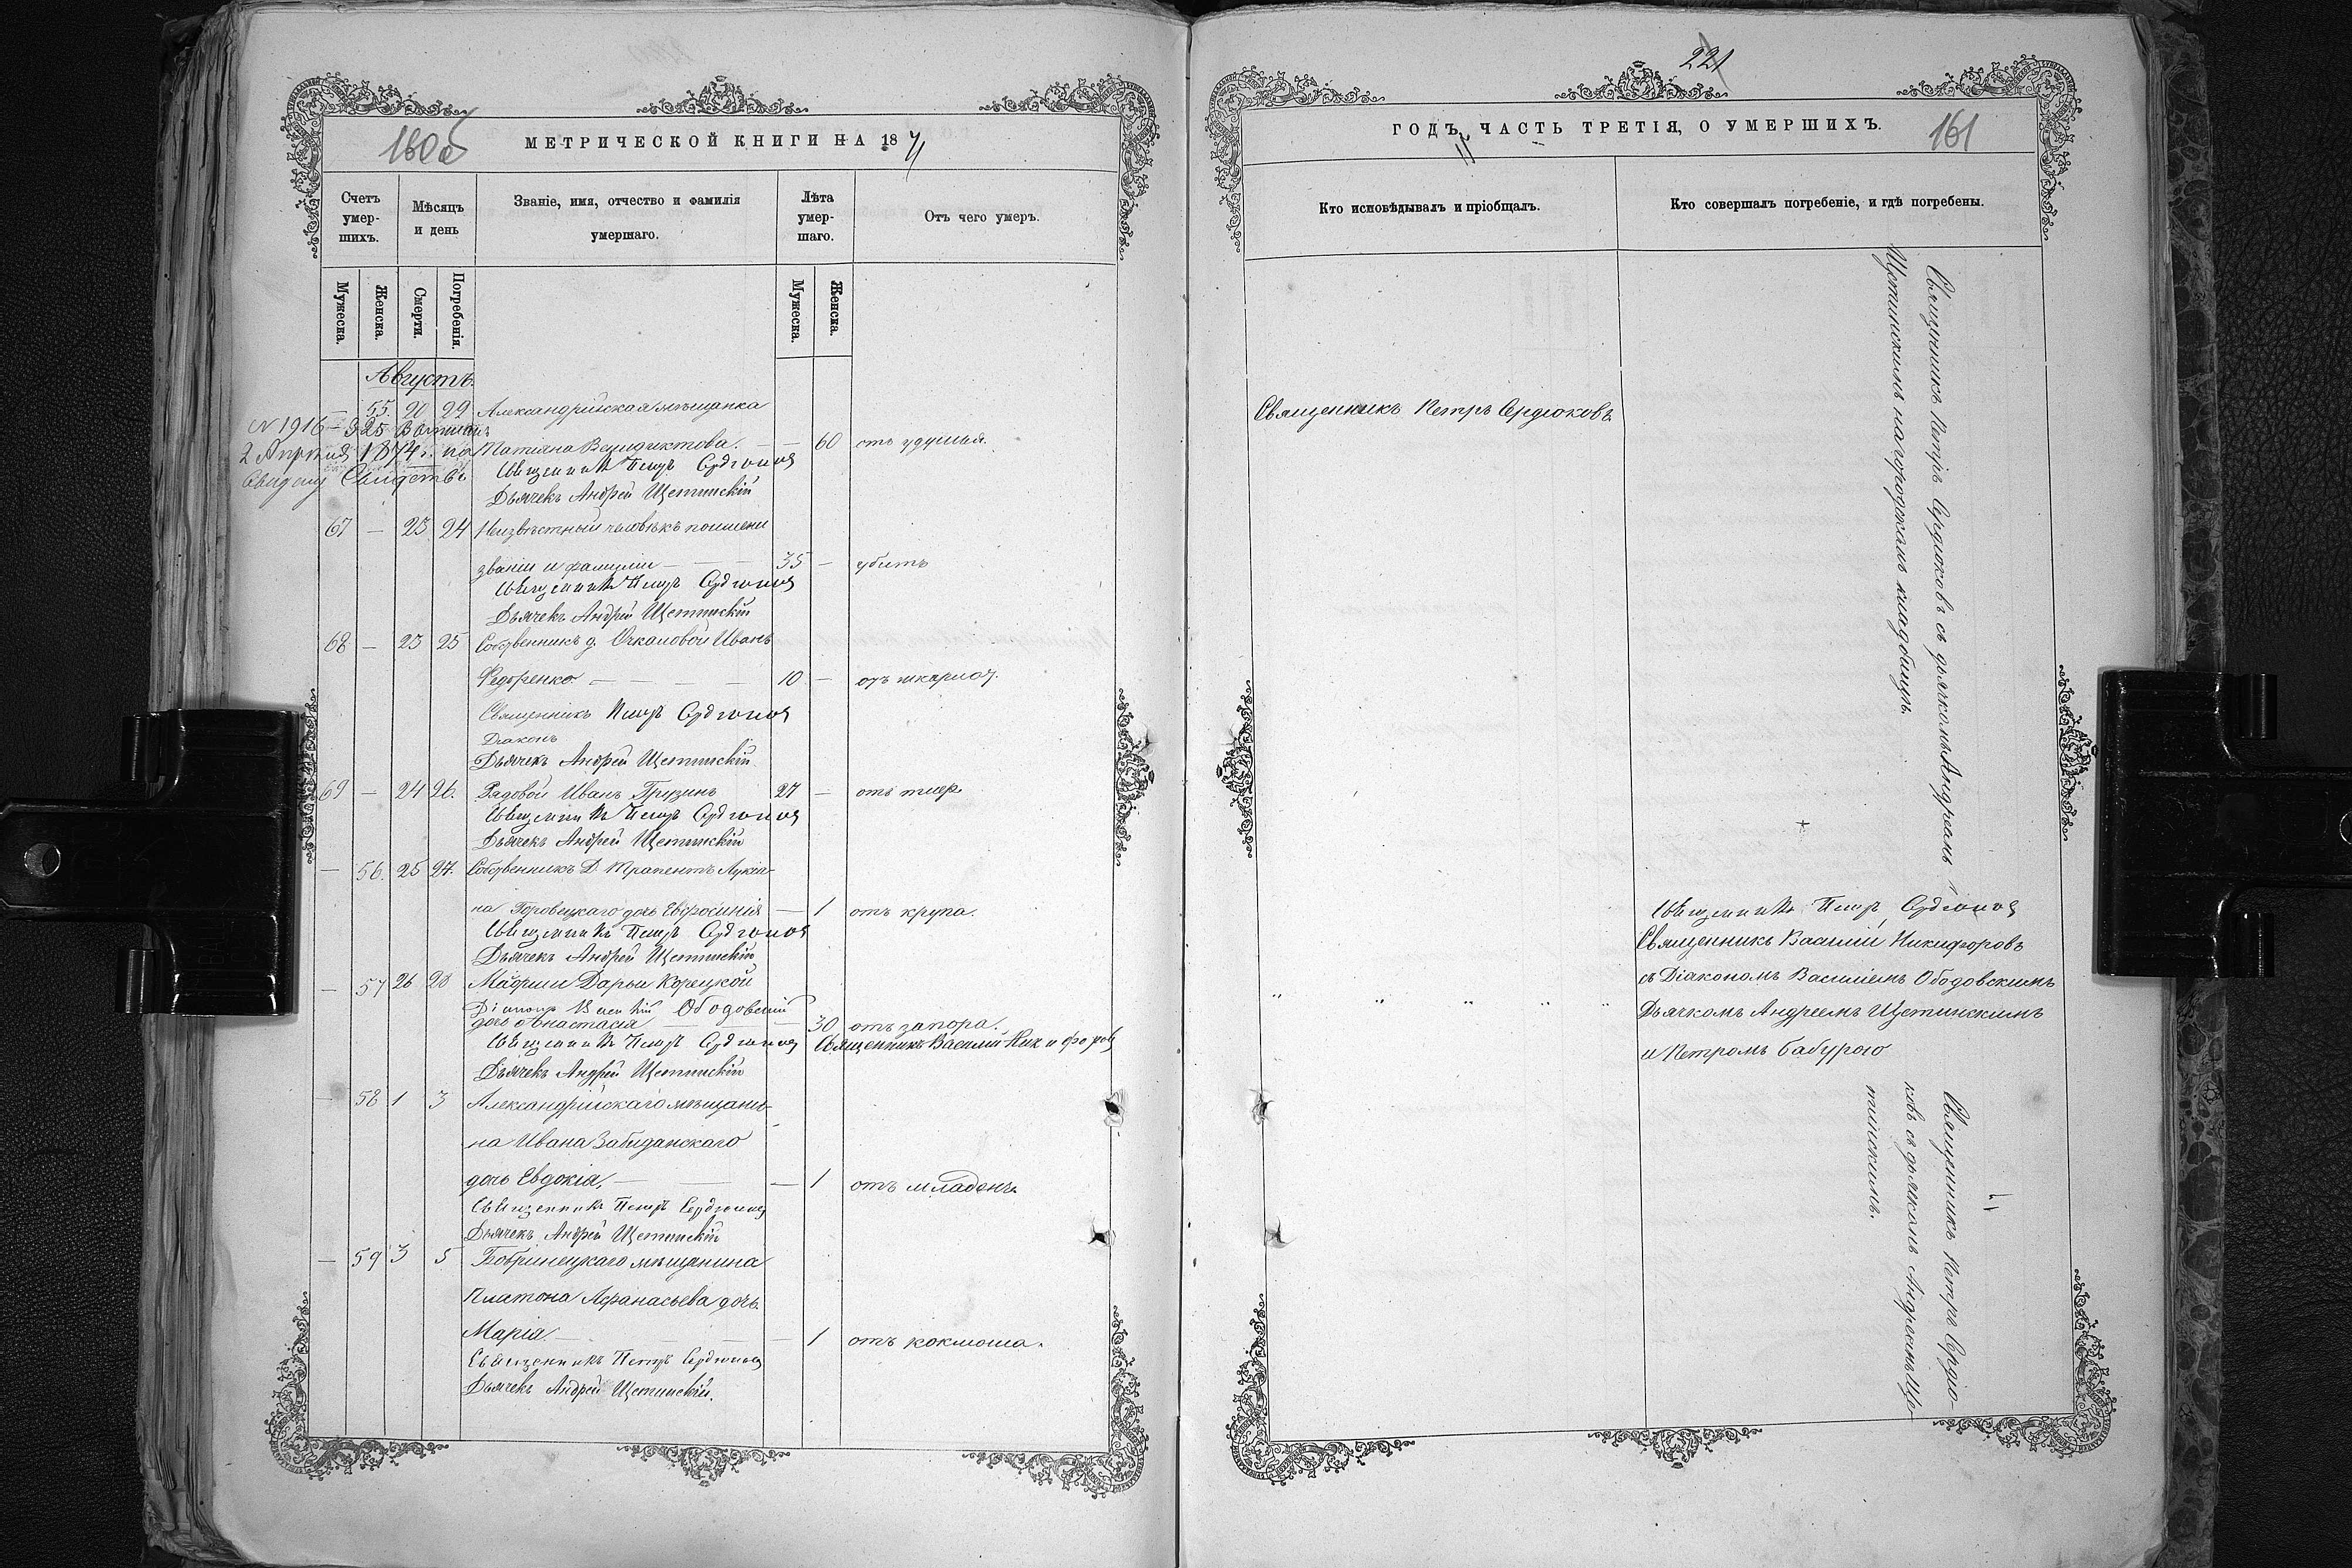 160об
МЕТРИЧЕСКОЙ КНИГИ НА 1871
Счетъ умер-шихъ.
Мѣсяцъ и день
Званіе, имя, отчество и фамилія умершаго.
Лѣта умер-шаго.
Отъ чего умеръ.
Мужеска.
Женска.
Смерти.
Погребенія.
Мужеска.
Женска.
Августъ.
— 55. 20 22 Александрійская мѣщанка
N 1916
2 Апрѣля 1874 г.
Татіана Венидиктова. — — 60 отъ удушья.
Священникъ Петръ Сердюковъ
Дьячекъ Андрей Щетинскій
67 — 23 24 Неизвѣстный человѣкъ по имени
званіи и фамиліи — — 35 — убитъ
Священникъ Петръ Сердюковъ
Дьячекъ Андрей Щетинскій
68 — 23 25 Собственникъ д. Очкаловой Иванъ
Федоренко — — — — 10 — отъ шкарлат.
Священникъ Петръ Сердюковъ
Діаконъ
Дьячекъ Андрей Щетинскій
69 — 24 26. Рядовой Иванъ Грузинъ 27 — отъ тиф.
Священникъ Петръ Сердюковъ
Дьячекъ Андрей Щетинскій
— 56. 25 27. Собственникъ Д. Лукія-
на дочь Евфросинія — 1 отъ крупа.
Священникъ Петръ Сердюковъ
Дьячекъ Андрей Щетинскій
— 57 26 28 Дарьи Корецкой
Діаконъ Василій Ободовскій
дочь Анастасія — — 30 отъ запора.
Священникъ Петръ Сердюковъ Священникъ Василій Никифоровъ
Дьячекъ Андрей Щетинскій
— 58 1 3 Александрійскаго мѣщани-
на Ивана Забизанскаго
дочь Евдокія, — — — 1 отъ младен.
Священникъ Петръ Сердюковъ
Дьячекъ Андрей Щетинскій
— 59 3 5 Бобринецкаго мѣщанина
Платона Афанасьева дочь
Марія — — 1 отъ коклюша.
Священникъ Петръ Сердюковъ
Дьячекъ Андрей Щетинскій.
221
ГОДЪ, ЧАСТЬ ТРЕТІЯ, О УМЕРШИХЪ.
161
Кто исповѣдывалъ и пріобщалъ.
Кто совершалъ погребеніе, и гдѣ погребены.
Священникъ Петръ Сердюковъ
Священникъ Петръ Сердюковъ съ дьячкомъ Андреемъ
Щетинскимъ на городскомъ кладбищѣ.
Священникъ Петръ Сердюковъ
Священникъ Василій Никифоровъ
съ Діакономъ Василіемъ Ободовскимъ
Дьячкомъ Андреемъ Щетинскимъ
и Петромъ Бабурою
Священникъ Петръ Сердю-
ковъ съ дьячкомъ Андреемъ Ще-
тинскимъ.